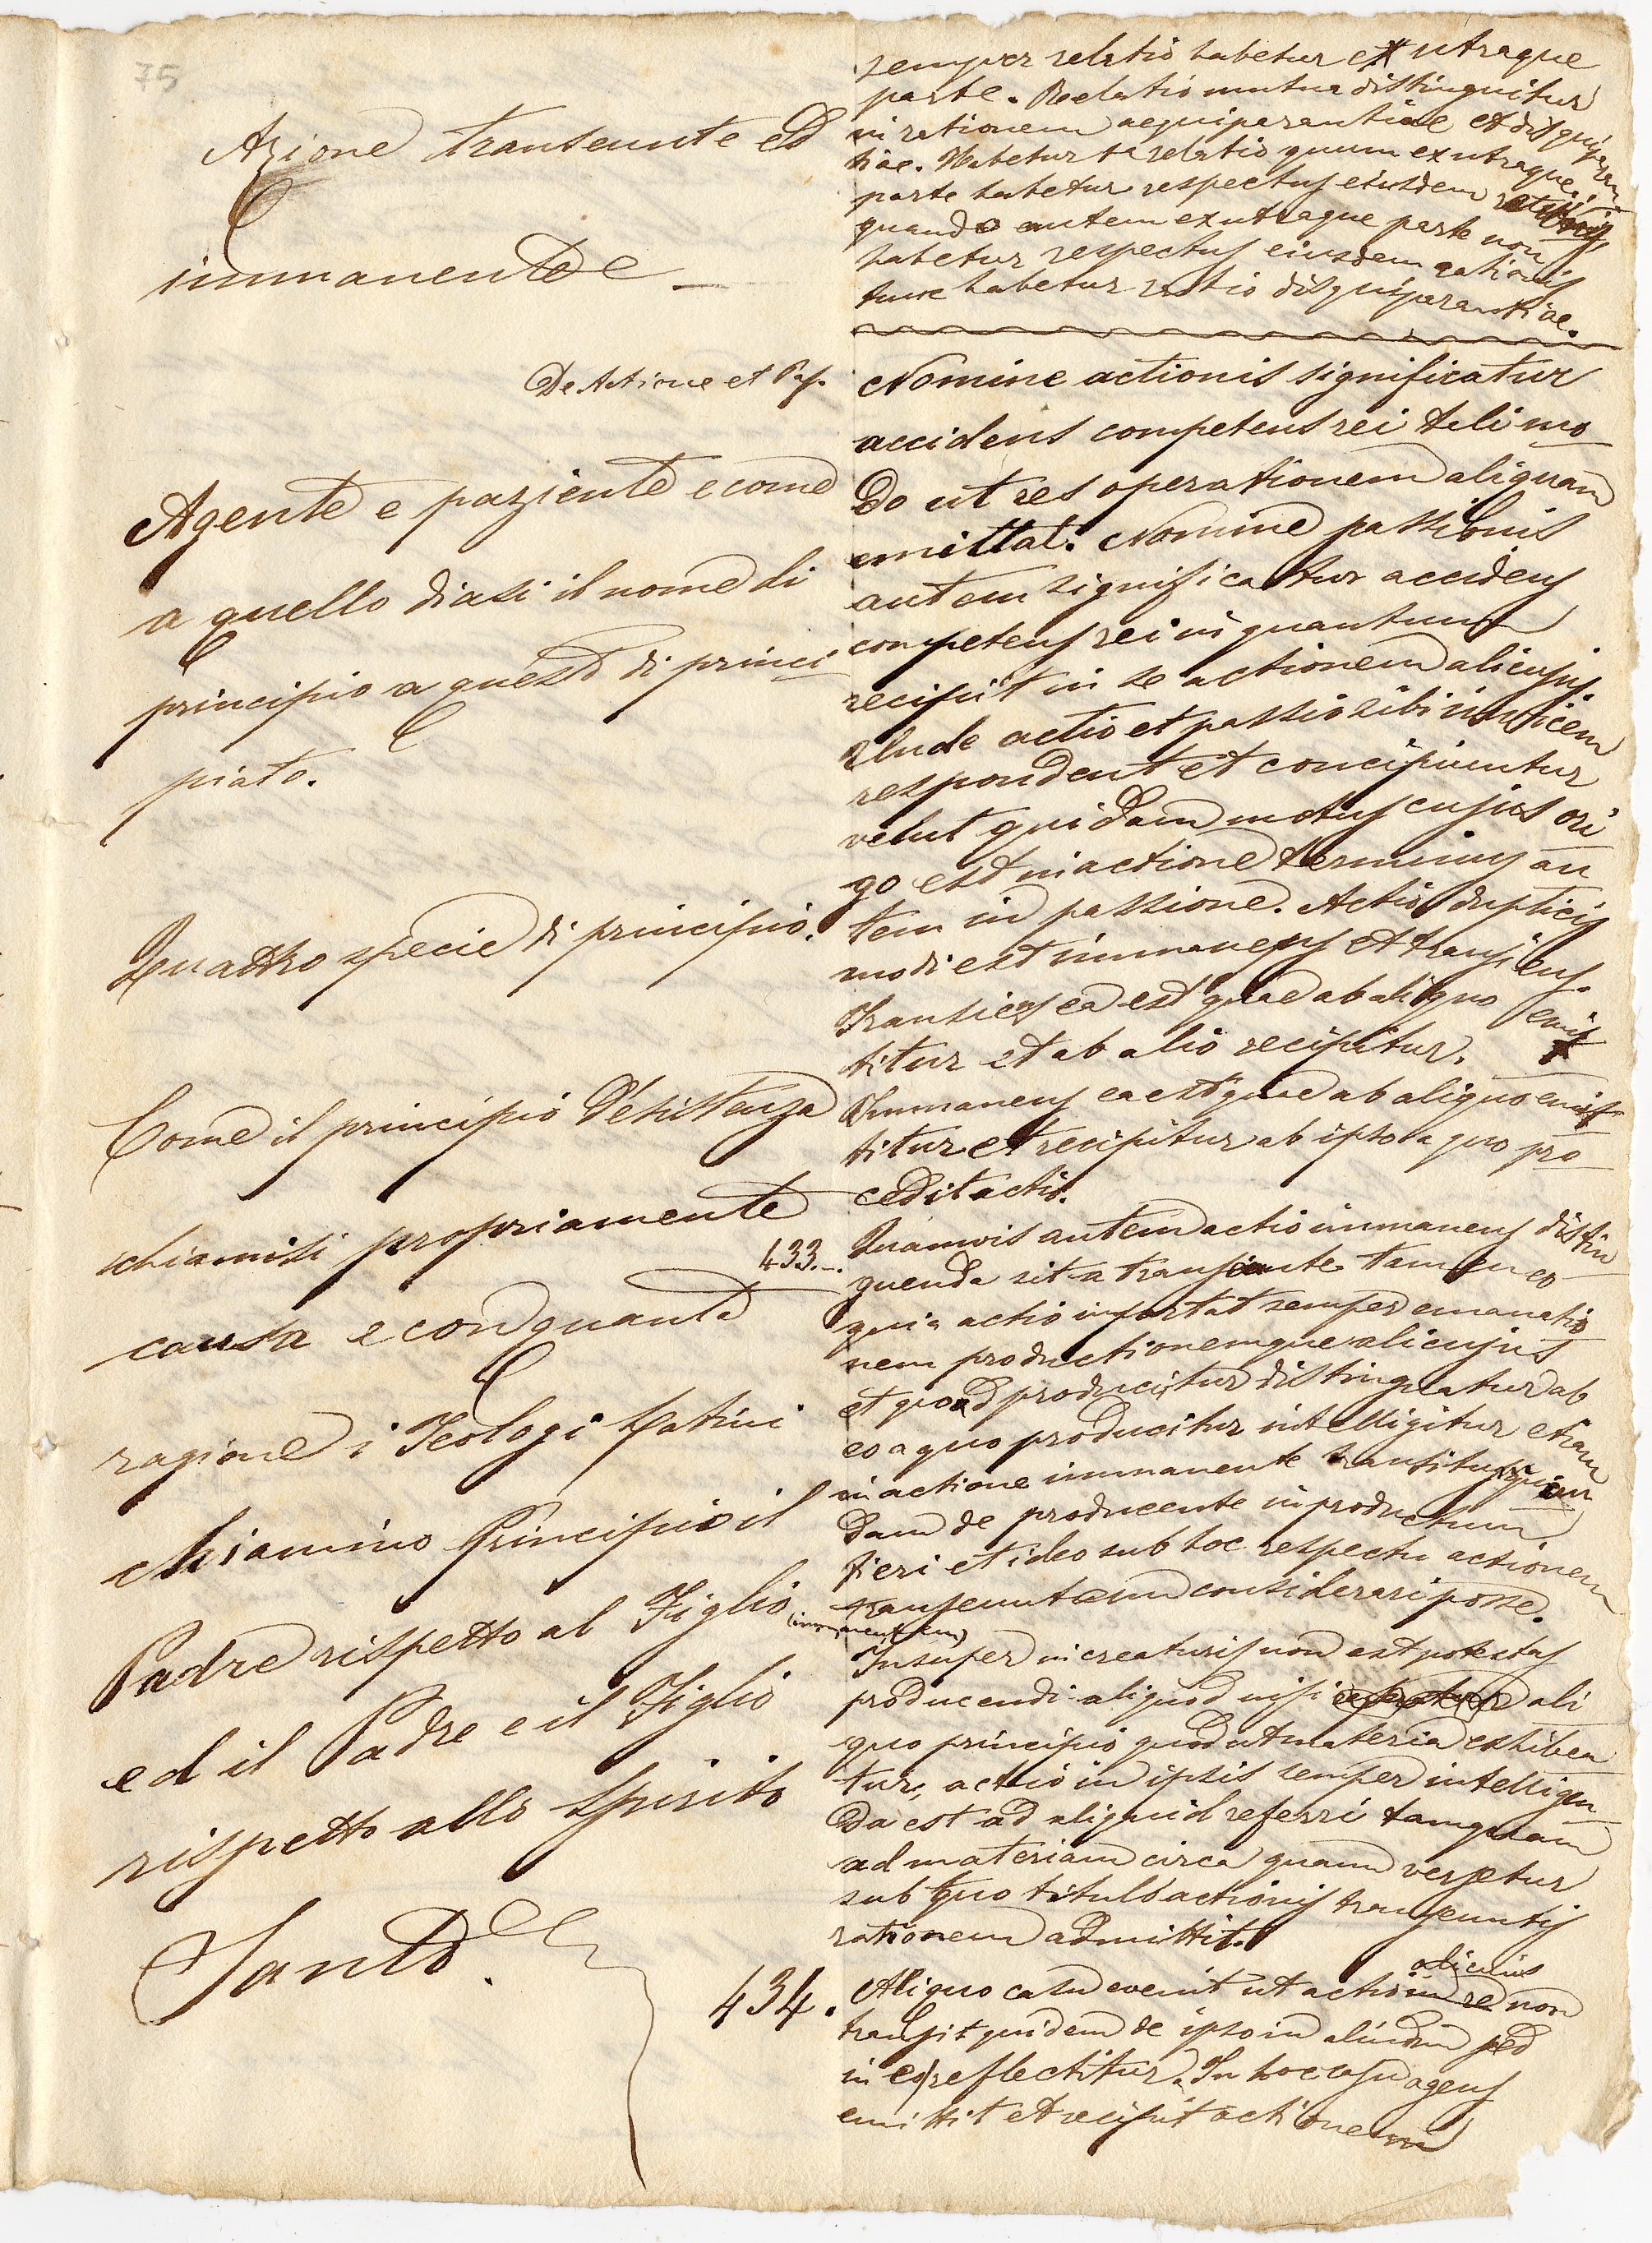 75
Azione transeunte ed
immanente
Agente e paziente e come
a quello diasi il nome di
principio a questo di princi
piato.
Quattro specie di principio.
Come il principio d'esistenza
chiamisi propriamente
causa e con quanta
ragione i Teologi Latini
chiamino Principio il
Padre rispetto al Figlio
ed il Padre e il Figlio
rispetto allo Spirito
Santo.
semper relatio habetur ex utraque
parte. Relatio mutua distinguitur
in rationem aequiparantiae et disquiparan
tiae. Habetur 1a relatio quum ex utraque
parte habetur respectus eiusdem rationis,
quando autem ex utraque parte non
habetur respectus eiusdem rationis
tunc habetur ratio disquiparantiae.
De Actione et Pas.
Nomine actionis significatur
accidens competens rei tali mo
do ut res operationem aliquam
emittat. Nomine passionis
autem significatur accidens
competens rei in quantum
recipit in se actionem alicujus.
Unde actio et passio sibi invicem
respondent et concipiuntur
velut quidam motus cujus ori
go est in actione terminus au
tem in passione. Actio duplicis
modi est immanens et transiens.
Transiens ea est quae ab aliquo emit
titur et ab alio recipitur.
Immanens ea est quae ab aliquo emit
titur et recipitur ab ipso a quo pro
cedit actio.
433.
Quamvis autem actio immanens distin
guenda sit a transeunte tamen eo
quia actio importat semper emanatio
nem productionemque alicujus
et quod producitur distinguatur ab
eo a quo producitur intelligitur etiam
in actione immanente transitus quem
dam de producente in productum
fieri et ideo sub hoc respectu actionem
transeuntem considerari posse.
(immanentem)
Insuper in creaturis non est potestas
producendi aliquod nisi ali
quo principio quod ut materia exhibea
tur, actio in ipsis semper intelligen
da est ad aliquid referri tamquam
ad materiam circa quam versetur
sub quo titulo actionis transeuntis
rationem admittit.
434.
alicuius
Aliquo casu evenit ut actio in re non
transit quidem de ipso in aliud sed
in eo reflectitur. In hoc casu agens
emittit et recipit actionem